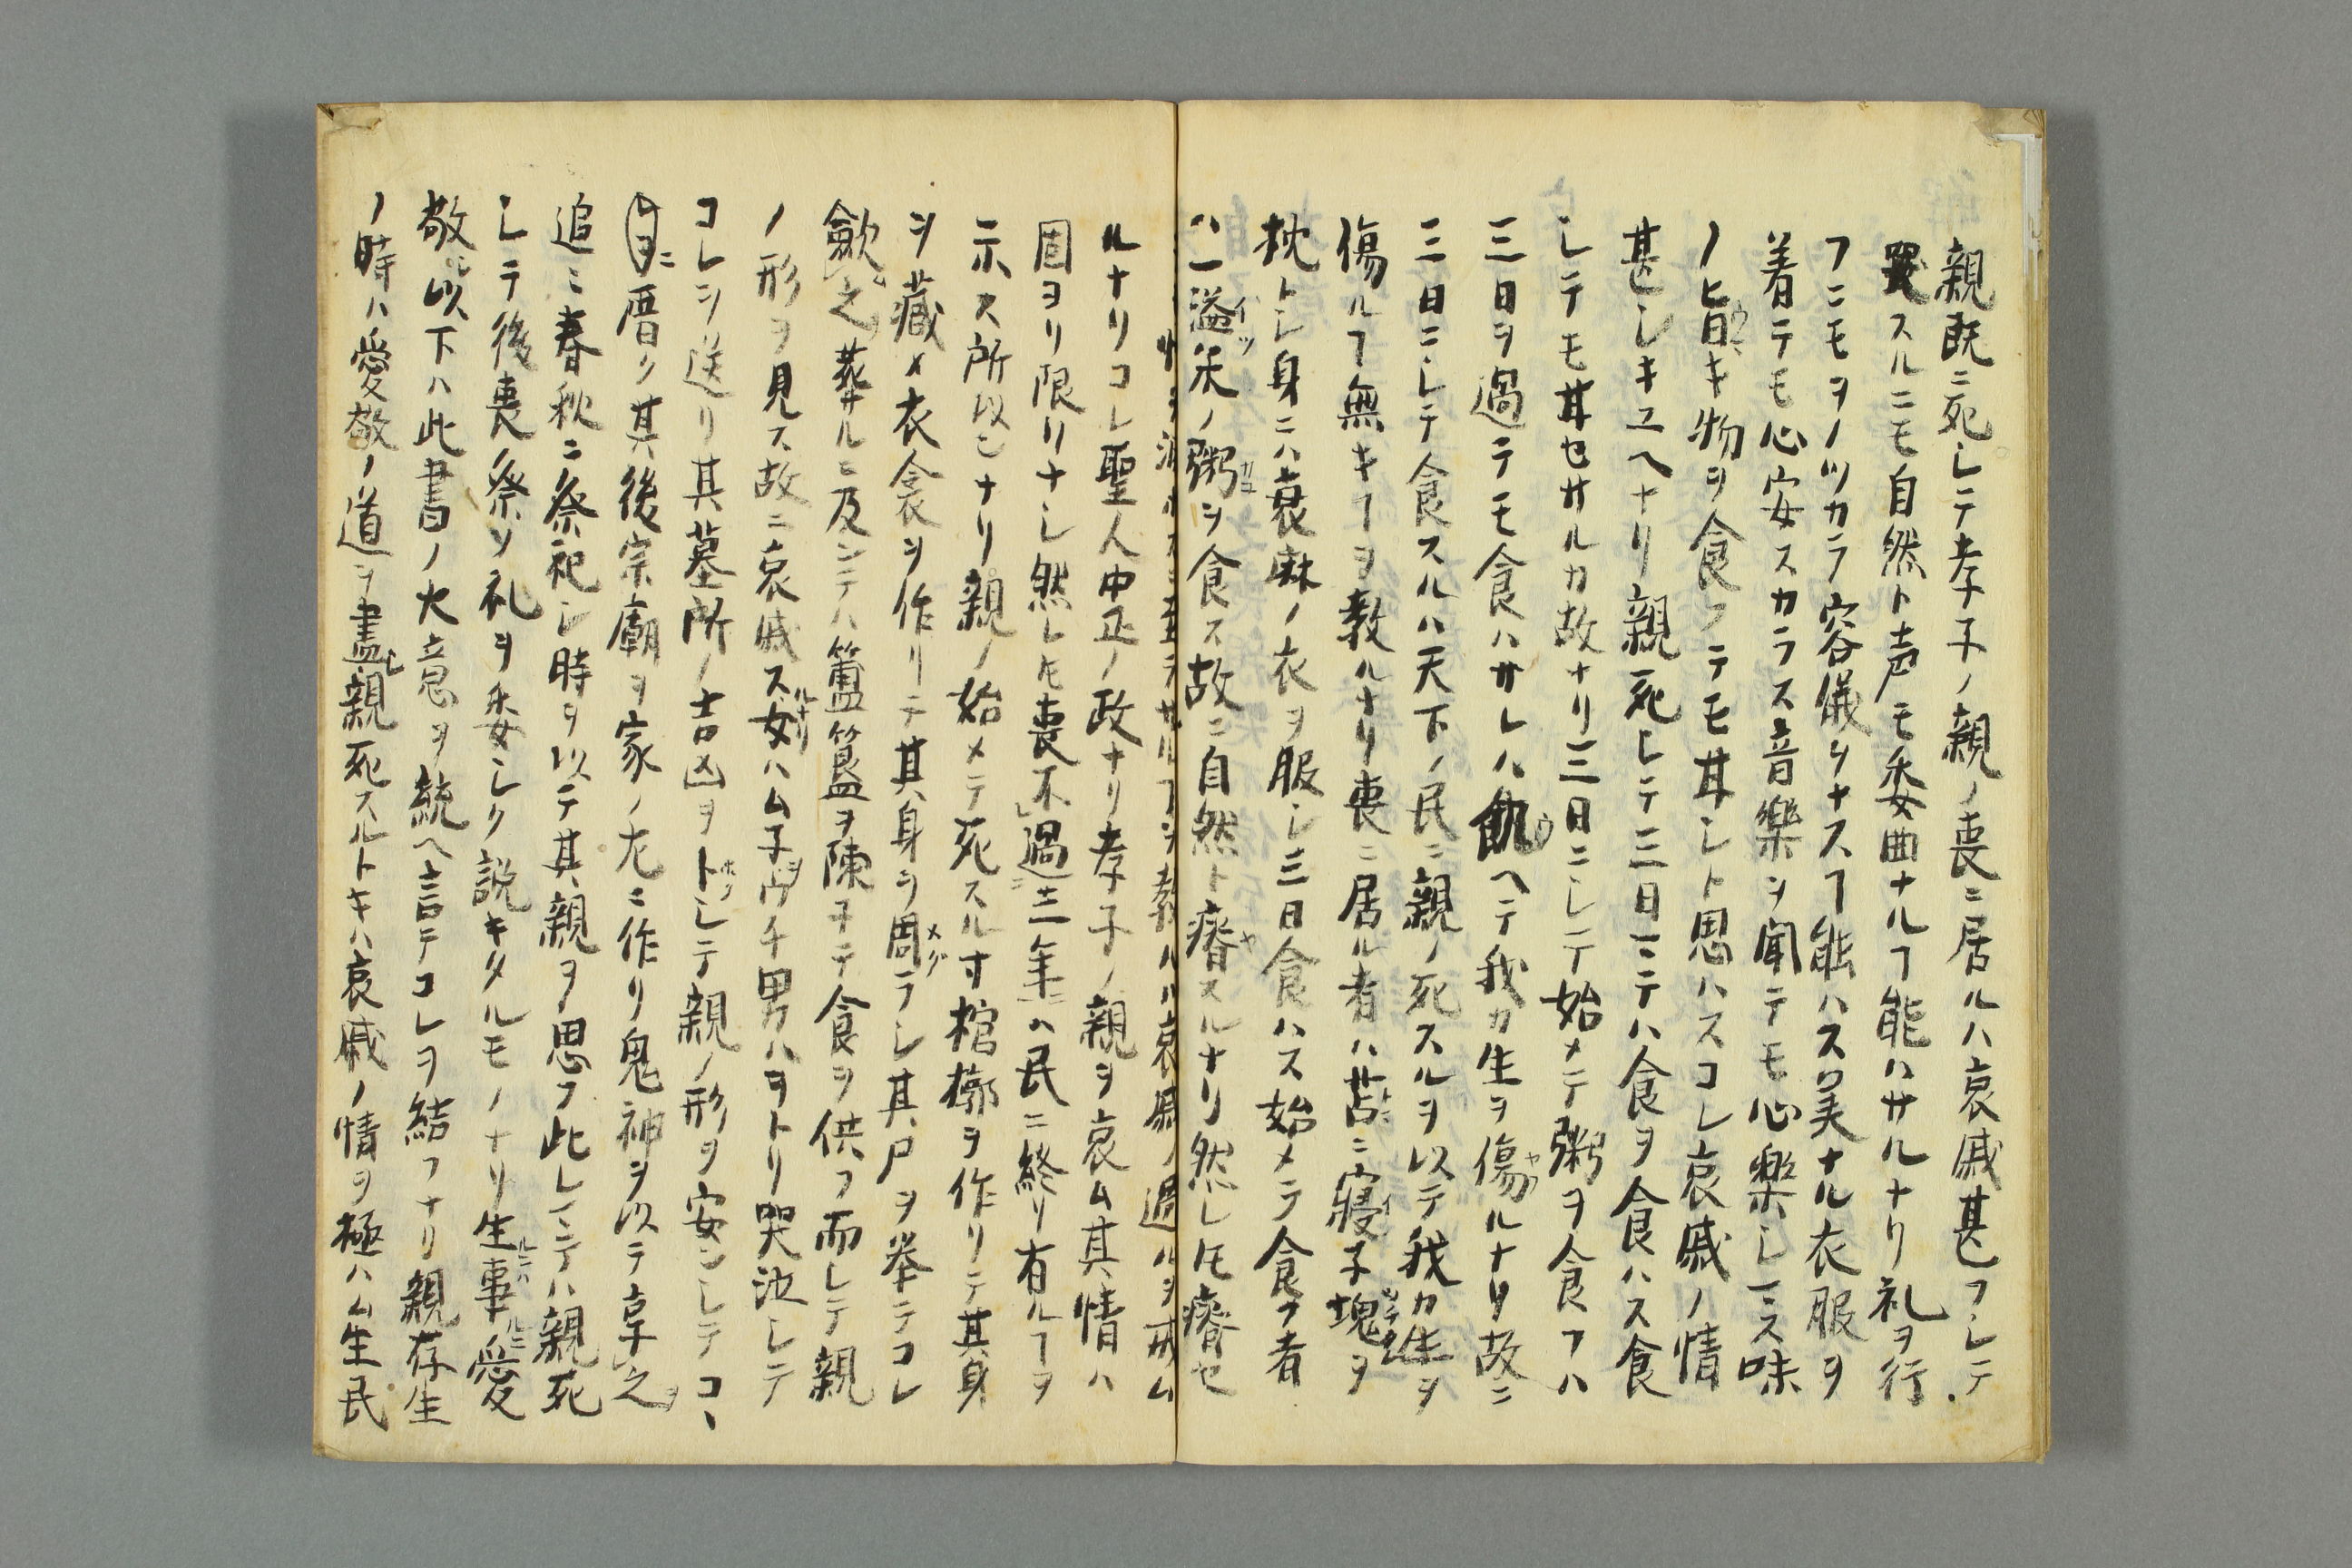 親既ニ死シテ孝子ノ親ノ喪ニ居ルハ哀戚甚フシテ
哭スルニモ自然ト声モ委曲ナルヿ能ハサルナリ礼ヲ行
フニモヲノツカラ容儀ヲナスヿ能ハス美ナル衣服ヲ
着テモ心安スカラス音樂ヲ聞テモ心樂シマス味
ノ旨キ物ヲ食フテモ甘シト思ハスコレ哀戚ノ情
甚シキユヘナリ親死シテ三日マテハ食ヲ食ハス食
シテモ甘セサルカ故ナリ三日ニシテ始メテ粥ヲ食フハ
三日ヲ過テモ食ハサレハ飢ヘテ我カ生ヲ傷ルナリ故ニ
三日ニシテ食スルハ天下ノ民ニ親ノ死スルヲ以テ我カ生ヲ
傷ルヿ無キヿヲ教ルナリ喪ニ居ル者ハ苫ニ寢子塊ヲ
枕トシ身ニハ衰麻ノ衣ヲ服シ三日食ハス始メテ食フ者
ハ一溢米ノ粥ヲ食ス故ニ自然ト瘠スルナリ然レ𪜈瘠セ
ルヿヲ教ルハ哀戚ノ過ルヲ戒ム
ルナリコレ聖人中正ノ政ナリ孝子ノ親ヲ哀ム其情ハ
固ヨリ限リナシ然レ𪜈喪不過三年ハ民ニ終リ有ルヿヲ
示ス所以ンナリ親ノ始メテ死スル寸棺槨ヲ作リテ其身
ヲ藏メ衣衾ヲ作リテ其身ヲ周ラシ其尸ヲ挙テコレ
歛之葬ルニ及ンテハ簠簋ヲ陳子テ食ヲ供フ而シテ親
ノ形ヲ見ス故ニ哀戚ス女ハム子ヲウチ男ハヲトリ哭泣シテ
コレヲ送リ其墓所ノ吉凶ヲトシテ親ノ形ヲ安ンシテコヽ
厝ク其後宗廟ヲ家ノ左ニ作リ鬼神ヲ以テ享之
追ニ春秋ニ祭祀シ時ヲ以テ其親ヲ思フ此レマテハ親死
シテ後喪ノ祭ソ礼ヲ委シク説キタルモノナリ生事愛
敬以下ハ此書ノ大意ヲ統ヘ言テコレヲ結フナリ親存生
ノ時ハ愛敬ノ道ヲ盡シ親死スルトキハ哀戚ノ情ヲ極ハム生民